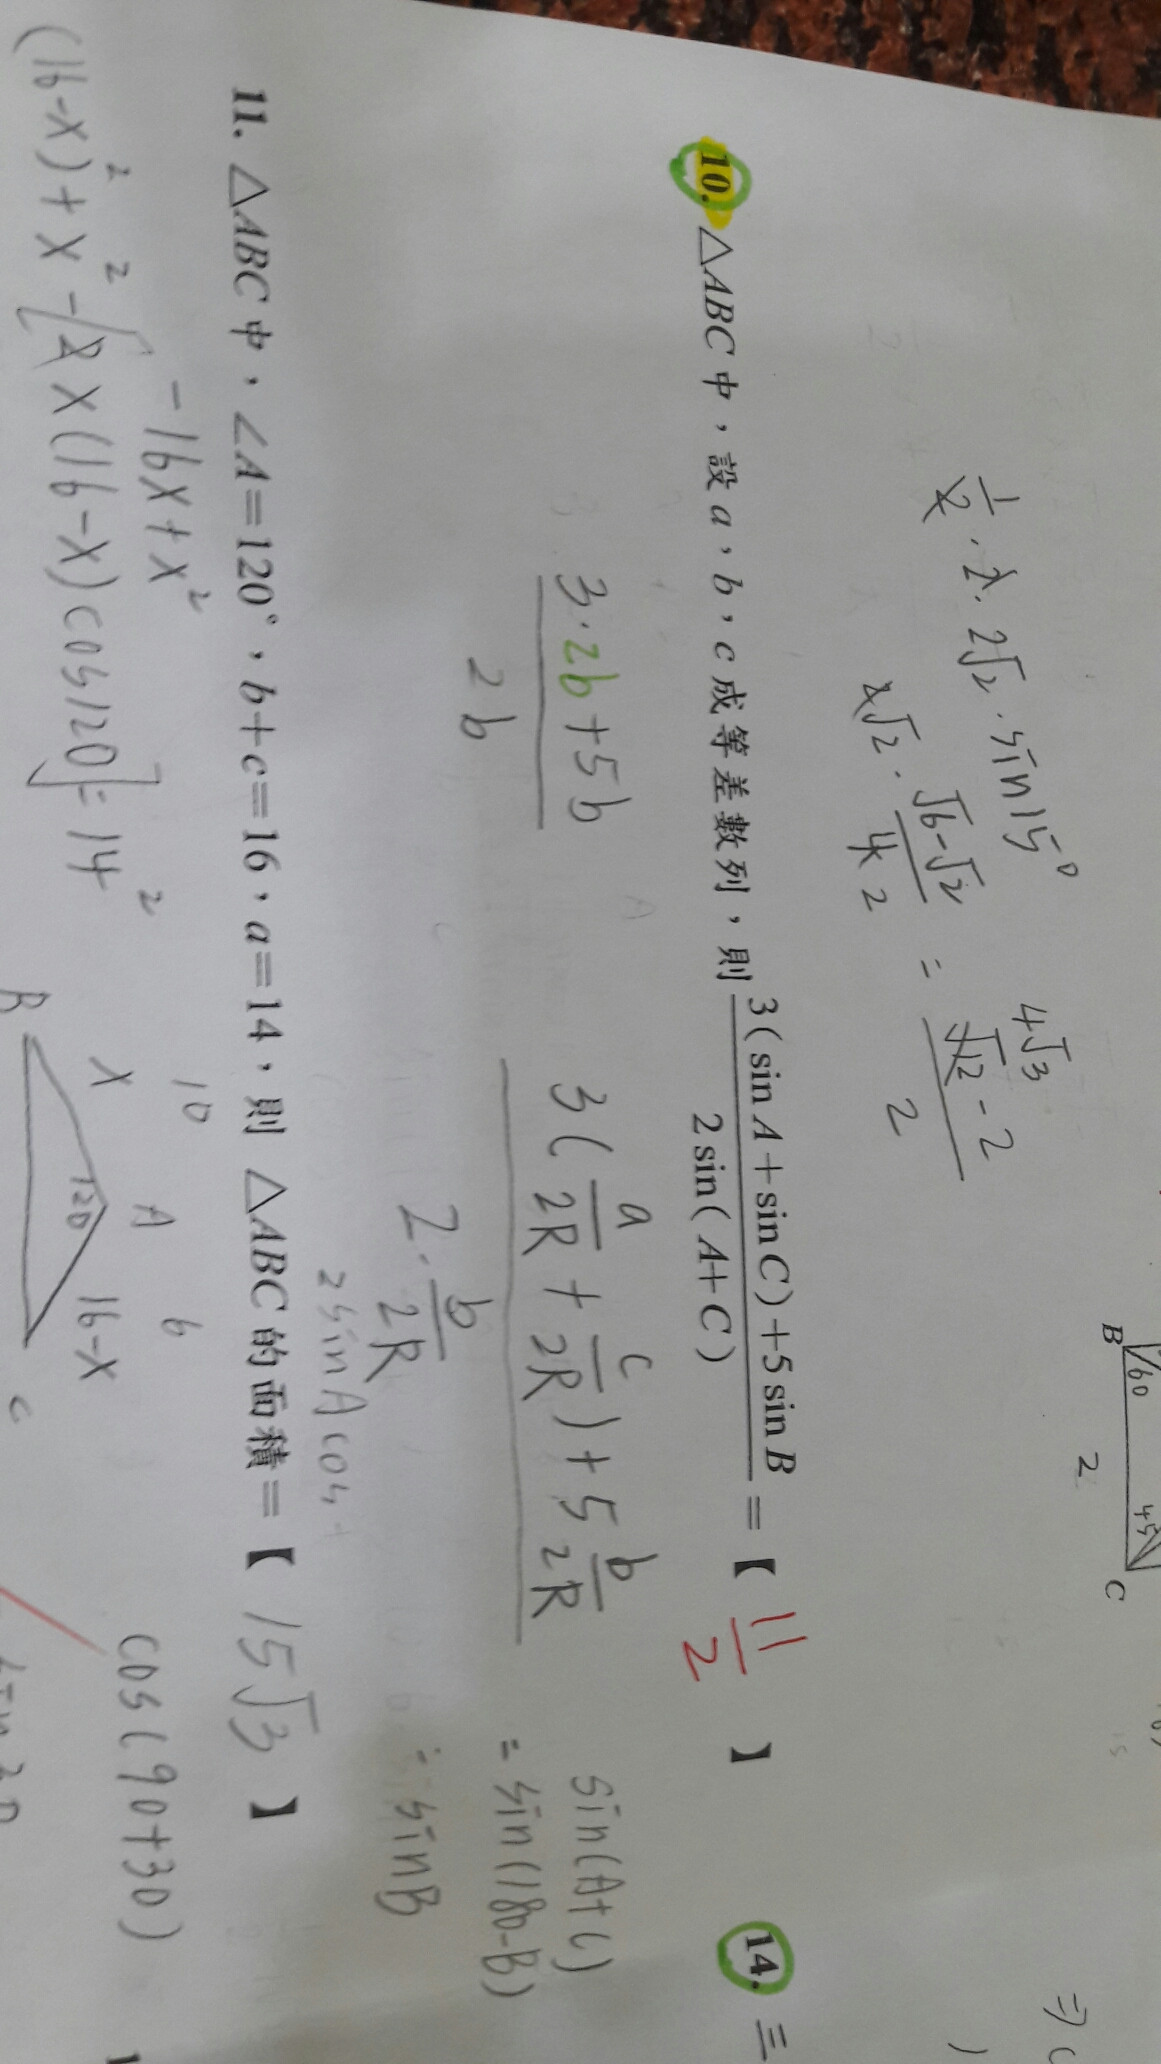 1/2 · 2 · 2√2 · sin15°
2√2 · (√6-√2)/4 2 = (√12 - 2)/2
4√3
B 60 2 45 C
10. △ABC 中，設 a，b，c 成等差數列，則 (3(sin A+sin C)+5 sin B)/(2 sin(A+C)) =【 11/2 】
14. 三
(3·2b+5b)/(2b)
(3(a/2R + c/2R)+5 b/2R)/(2· b/2R)
sin(A+C)
= sin(180-B)
= sinB
2sinAcos
11. △ABC 中，∠A=120°，b+c=16，a=14，則 △ABC 的面積=【 15√3 】
-16x+x²
(16-x)²+x²-[2x(16-x)cos120]=14²
10 A 6
B x 120 16-x C
cos(90+30)